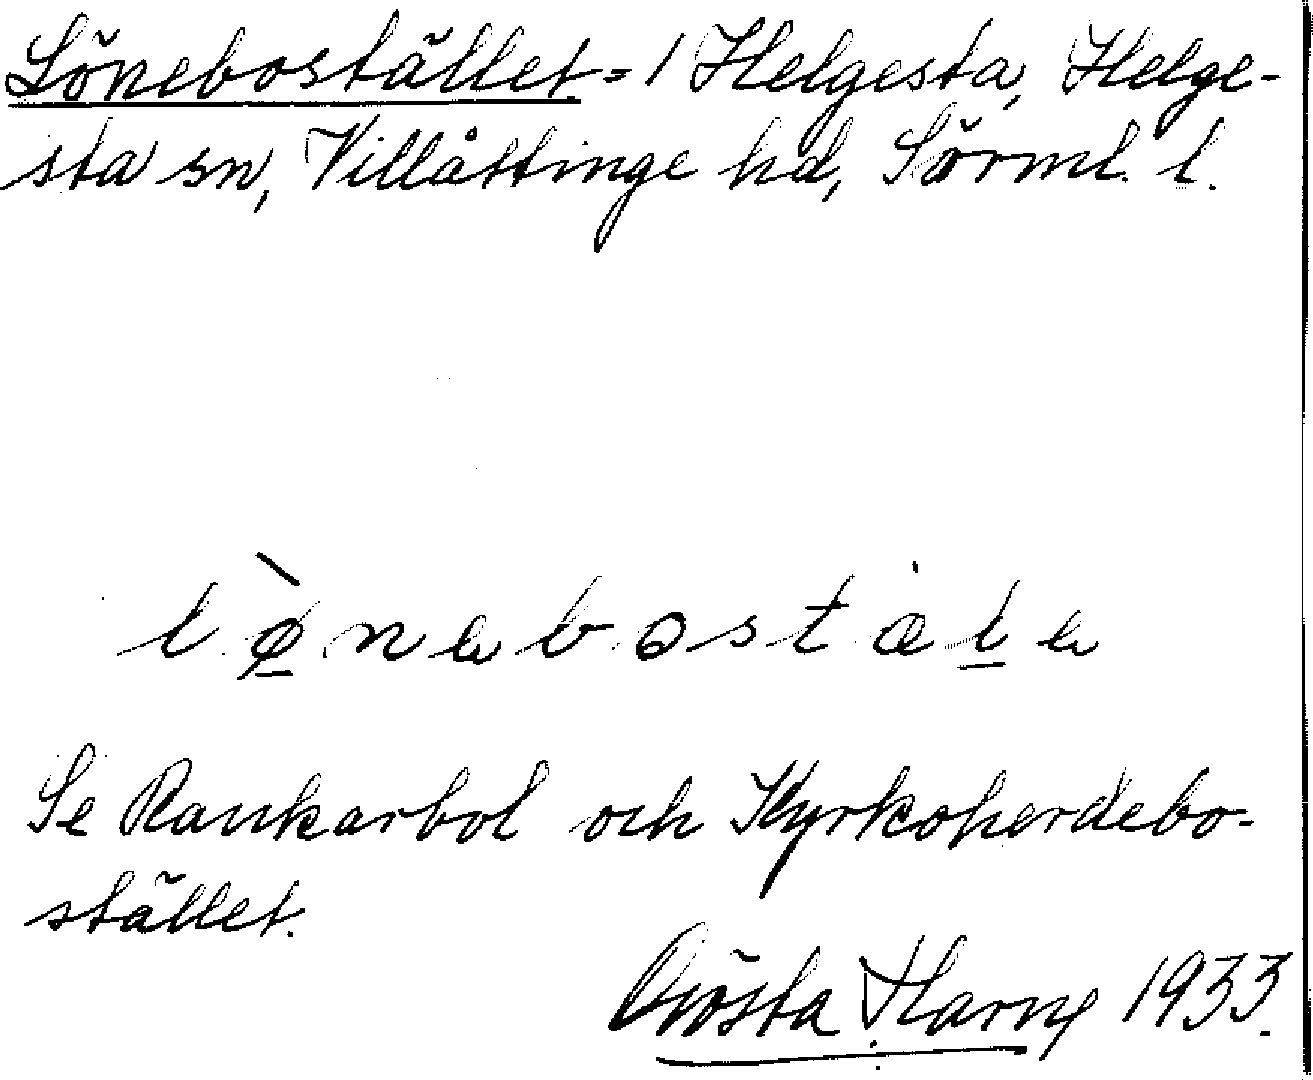 Lönebostället = 1 Helgesta, Helge-
sta sn, Villåttinge hd, Sörml. l.
lø̀nebostæle
Se Rankarbol och Kyrkoherdebo-
stället.
Gösta Harne 1933.